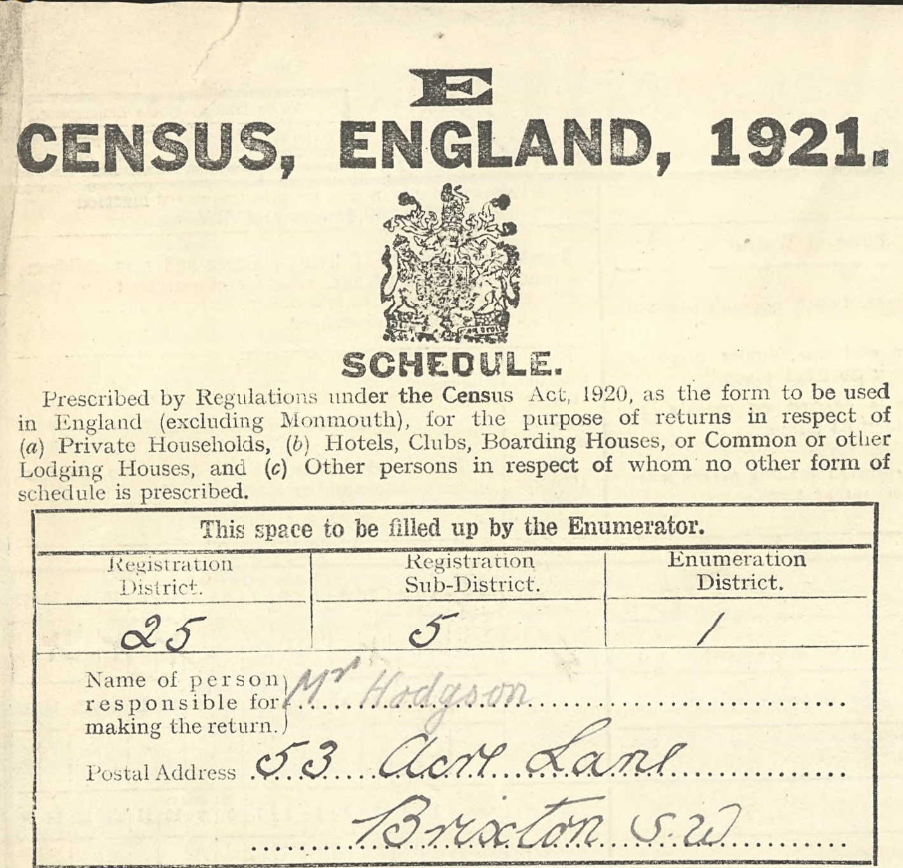 E
CENSUS, ENGLAND, 1921.
SCHEDULE.
Prescribed by Regulations under the Census Act, 1920, as the form to be used
in England (excluding Monmouth), for the purpose of returns in respect of
(a) Private Households, (b) Hotels, Clubs, Boarding Houses, or Common or other
Lodging Houses, and (c) Other persons in respect of whom no other form of
schedule is prescribed.
This space to be filled up by the Enumerator.
Registration District.
Registration Sub-District.
Enumeration District.
25 5 1
Name of person
responsible for Mr Hodgson
making the return.
Postal Address 53 Acre Lane
Brixton S.W